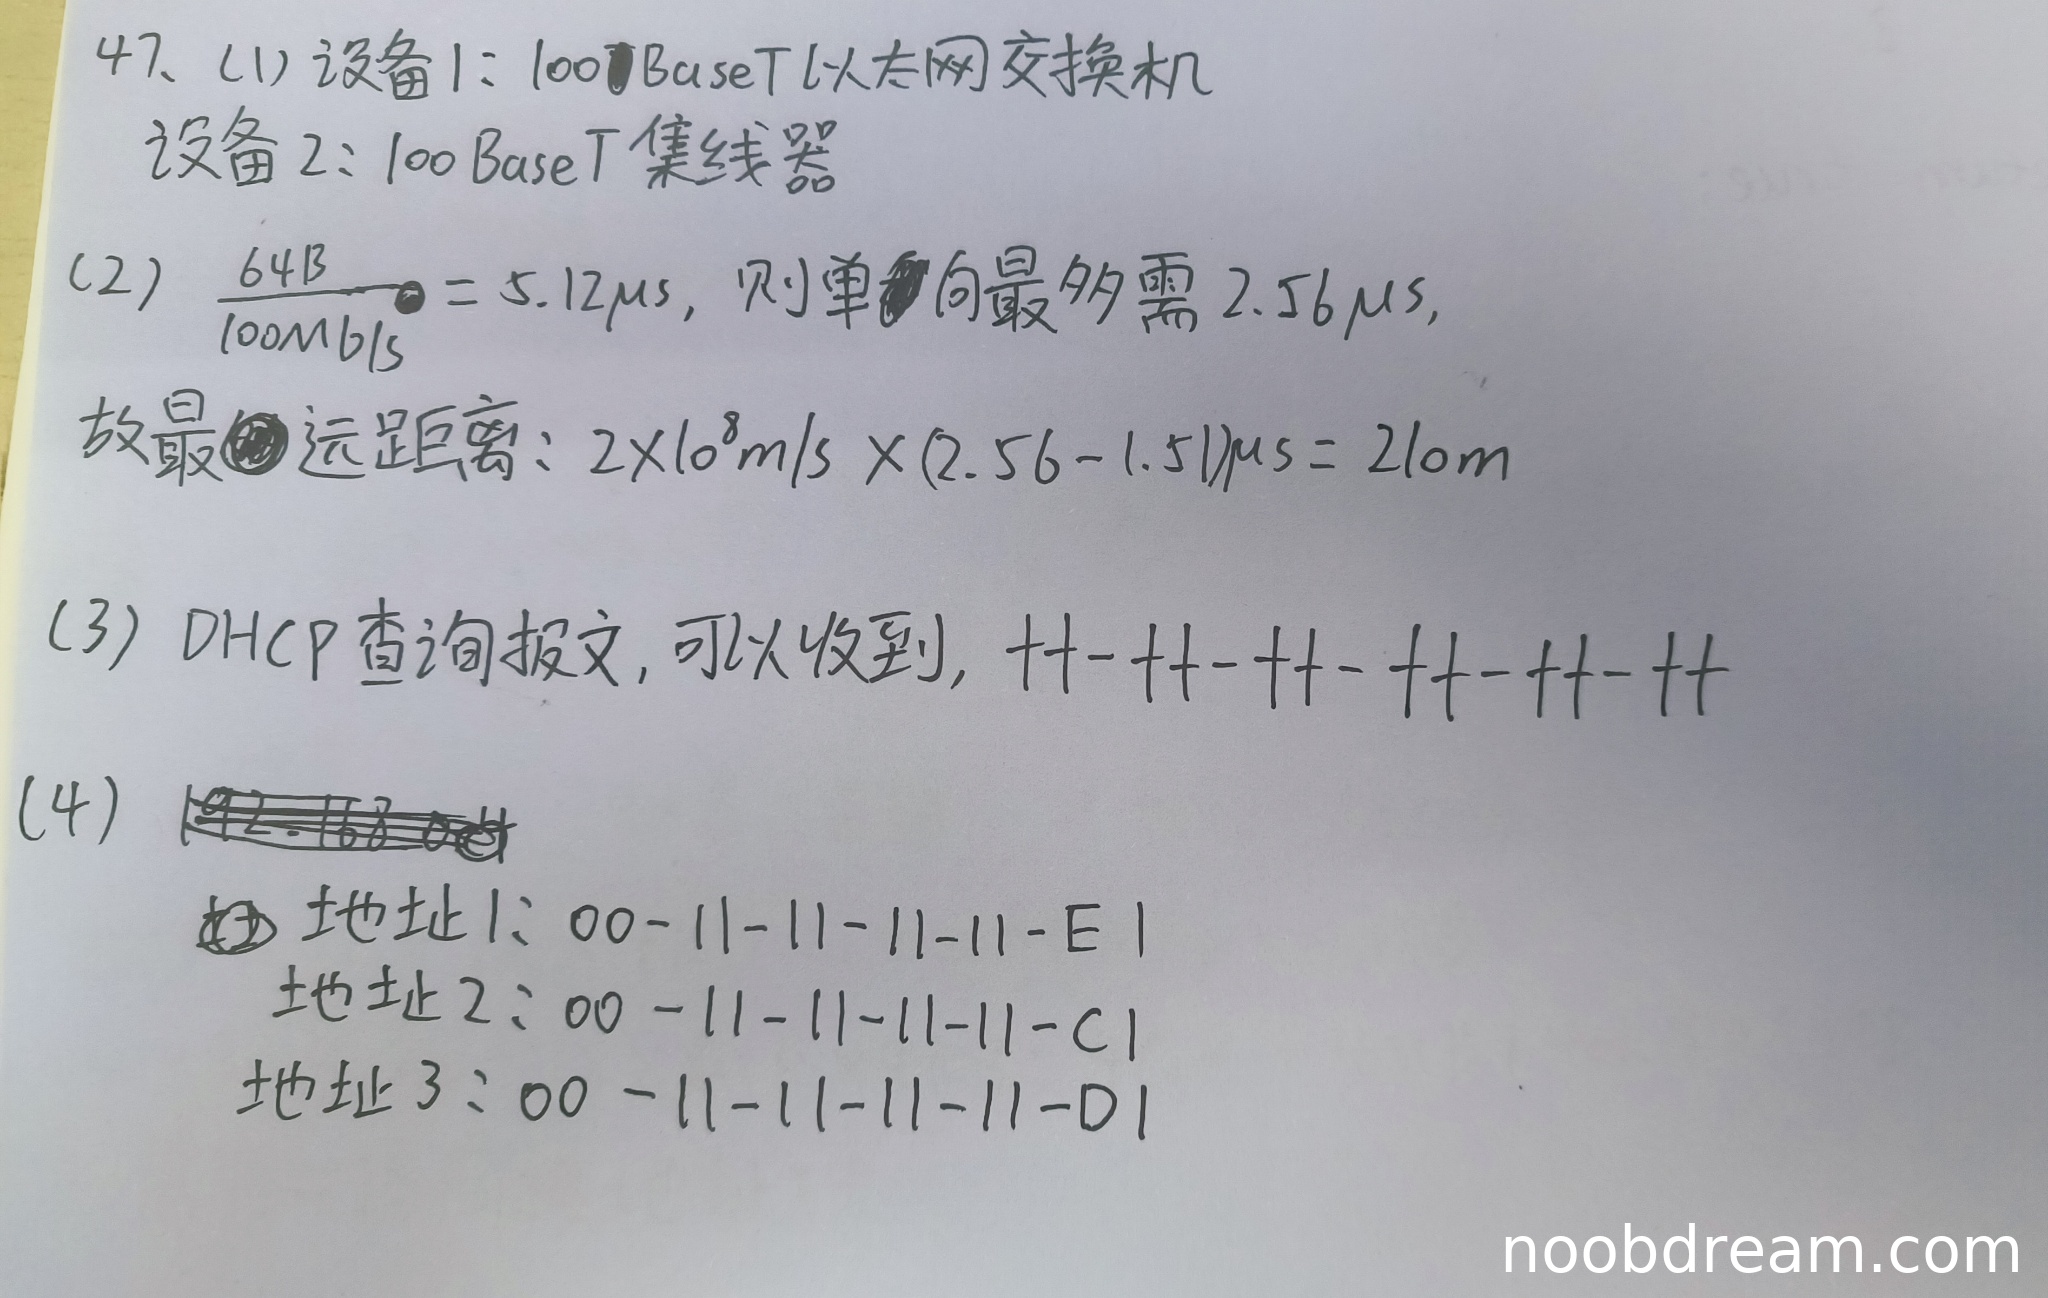 47、(1) 设备1: 100BaseT以太网交换机
设备2: 100BaseT集线器
(2) 64B/100Mb/s = 5.12μs, 则单向最多需2.56μs,
故最远距离: 2×10⁸m/s ×(2.56-1.51)μs = 210m
(3) DHCP查询报文, 可以收到, ff-ff-ff-ff-ff-ff
(4)
地址1: 00-11-11-11-11-E1
地址2: 00-11-11-11-11-C1
地址3: 00-11-11-11-11-D1
noobdream.com